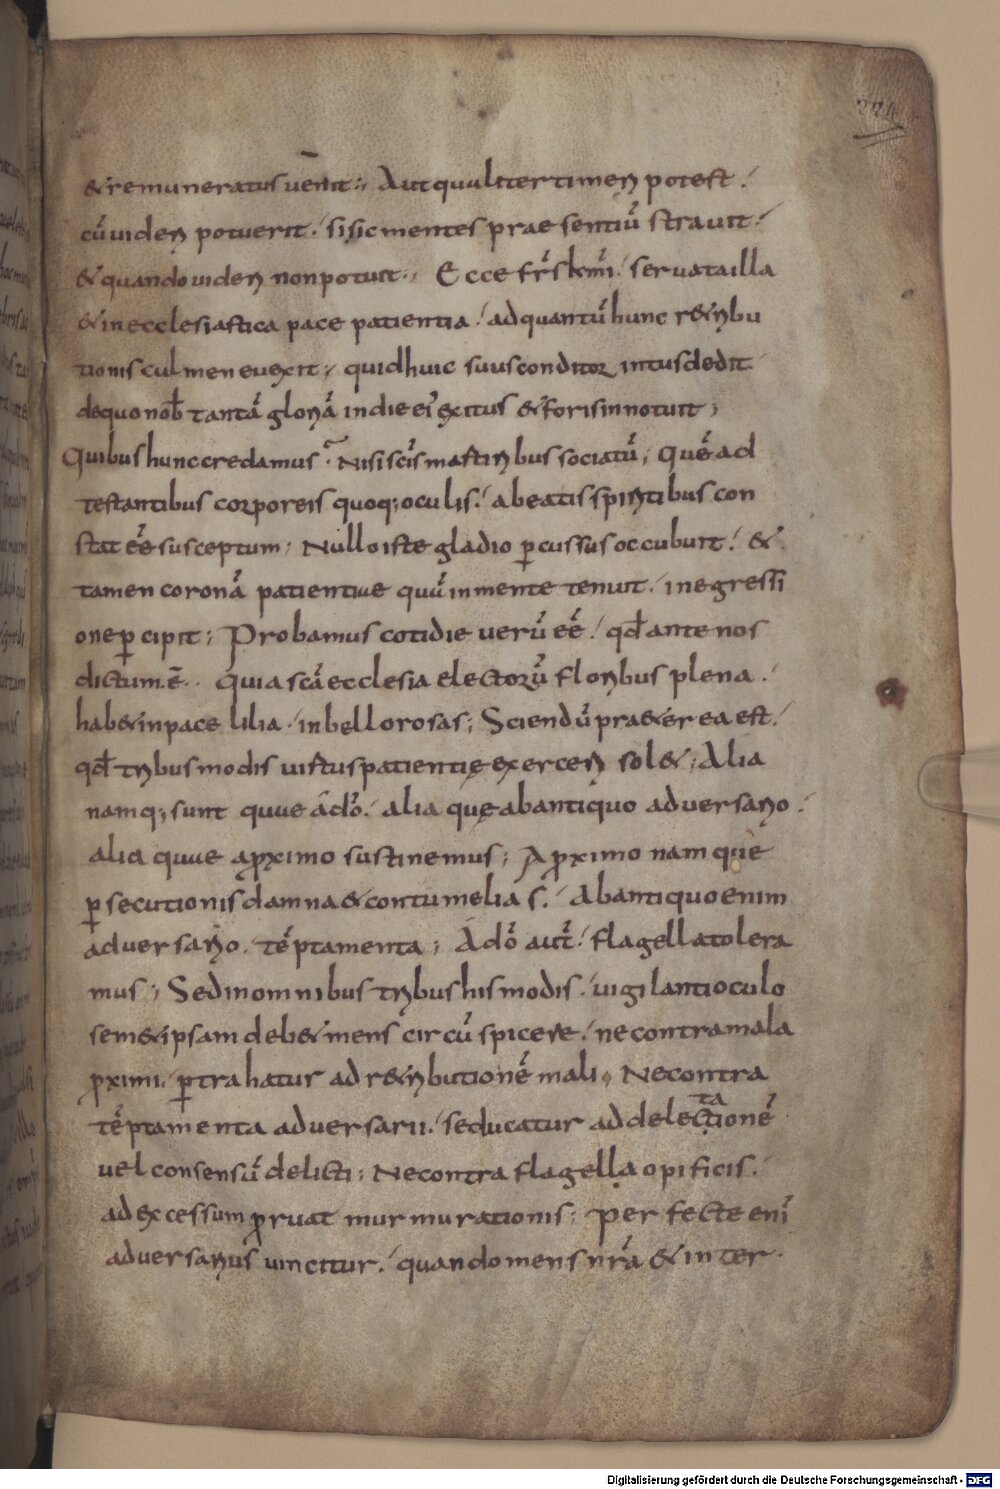 224
& remuneratus venit; Aut qualiter timeri potest.
cū uideri potuerit. si sic mentes praesentiū strauit.
& quando uideri non potuit; Ecce frs kmi. seruata illa
& in ecclesiastica pace patientia. ad quantū hunc r&ribu
tionis culmen euexit; quid huic suus conditor intus dedit.
de quo nob tantā gloriā in die ei' exitus & foris innotuit;
Quibus hunc credamus. Nisi scis martiribus sociatū; Quē ad
testantibus corporeis quoq; oculis. a beatis spiritibus con
stat eē susceptum; Nullo iste gladio pcussus occubuit. &
tamen coronā patientiae quā in mente tenuit. in egressi
one pcipit; Probamus cotidie uerū eē. qd ante nos
dictum ē. Quia scā ecclesia electorū floribus plena.
hab& in pace lilia. in bello rosas; Sciendū pra&erea est.
qd tribus modis uirtus patientię exerceri sol&; Alia
namq; sunt quae a do. alia quę ab antiquo aduersario.
alia quae a pximo sustinemus; A pximo namque
psecutionis damna & contumelias. Ab antiquo enim
aduersario. tēptamenta; A do aut. flagella tolera
mus; Sed in omnibus tribus his modis. uigilanti oculo
sem&ipsam deb& mens circū spicere. ne contra mala
pximi. ptrahatur ad r&ributionē mali. Ne contra
tēptamenta aduersarii. seducatur ad delectationē
uel consensū delicti; Ne contra flagella opificis.
ad excessum pruat murmurationis; Perfecte eni
aduersarius uincitur. quando mens nra & inter
Digitalisierung gefördert durch die Deutsche Forschungsgemeinschaft - DFG